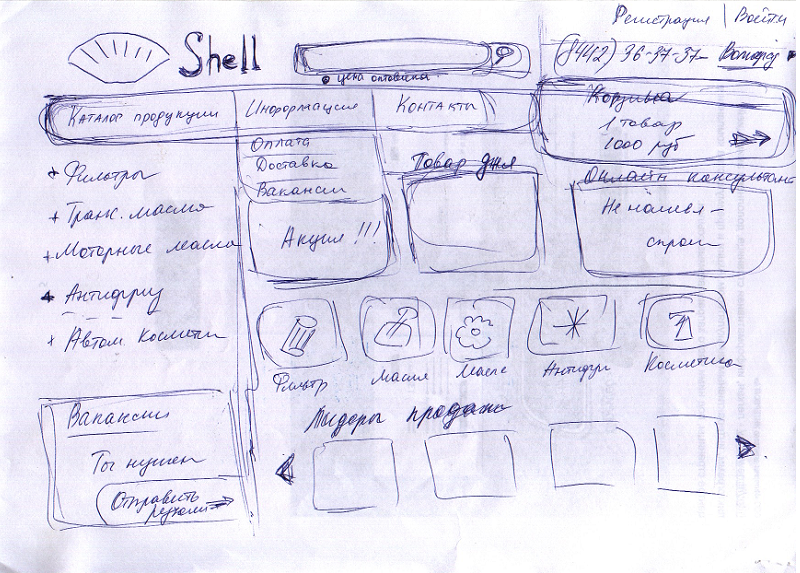 Регистрация | Войти
Shell
(8442) 36-37-37
цена оптовика
Каталог продукции
Информация
Контакты
Корзина
1 товар
1000 руб
Оплата
Доставка
Вакансии
Товар дня
Онлайн консультант
+ Фильтры
+ Транс. масла
+ Моторные масла
+ Антифриз
+ Автом. косметика
Акция!!!
спроси
Фильтр
Масла
Масло
Антифриз
Косметика
Лидеры продаж
Вакансии
Ты нужен
Отправить
резюме